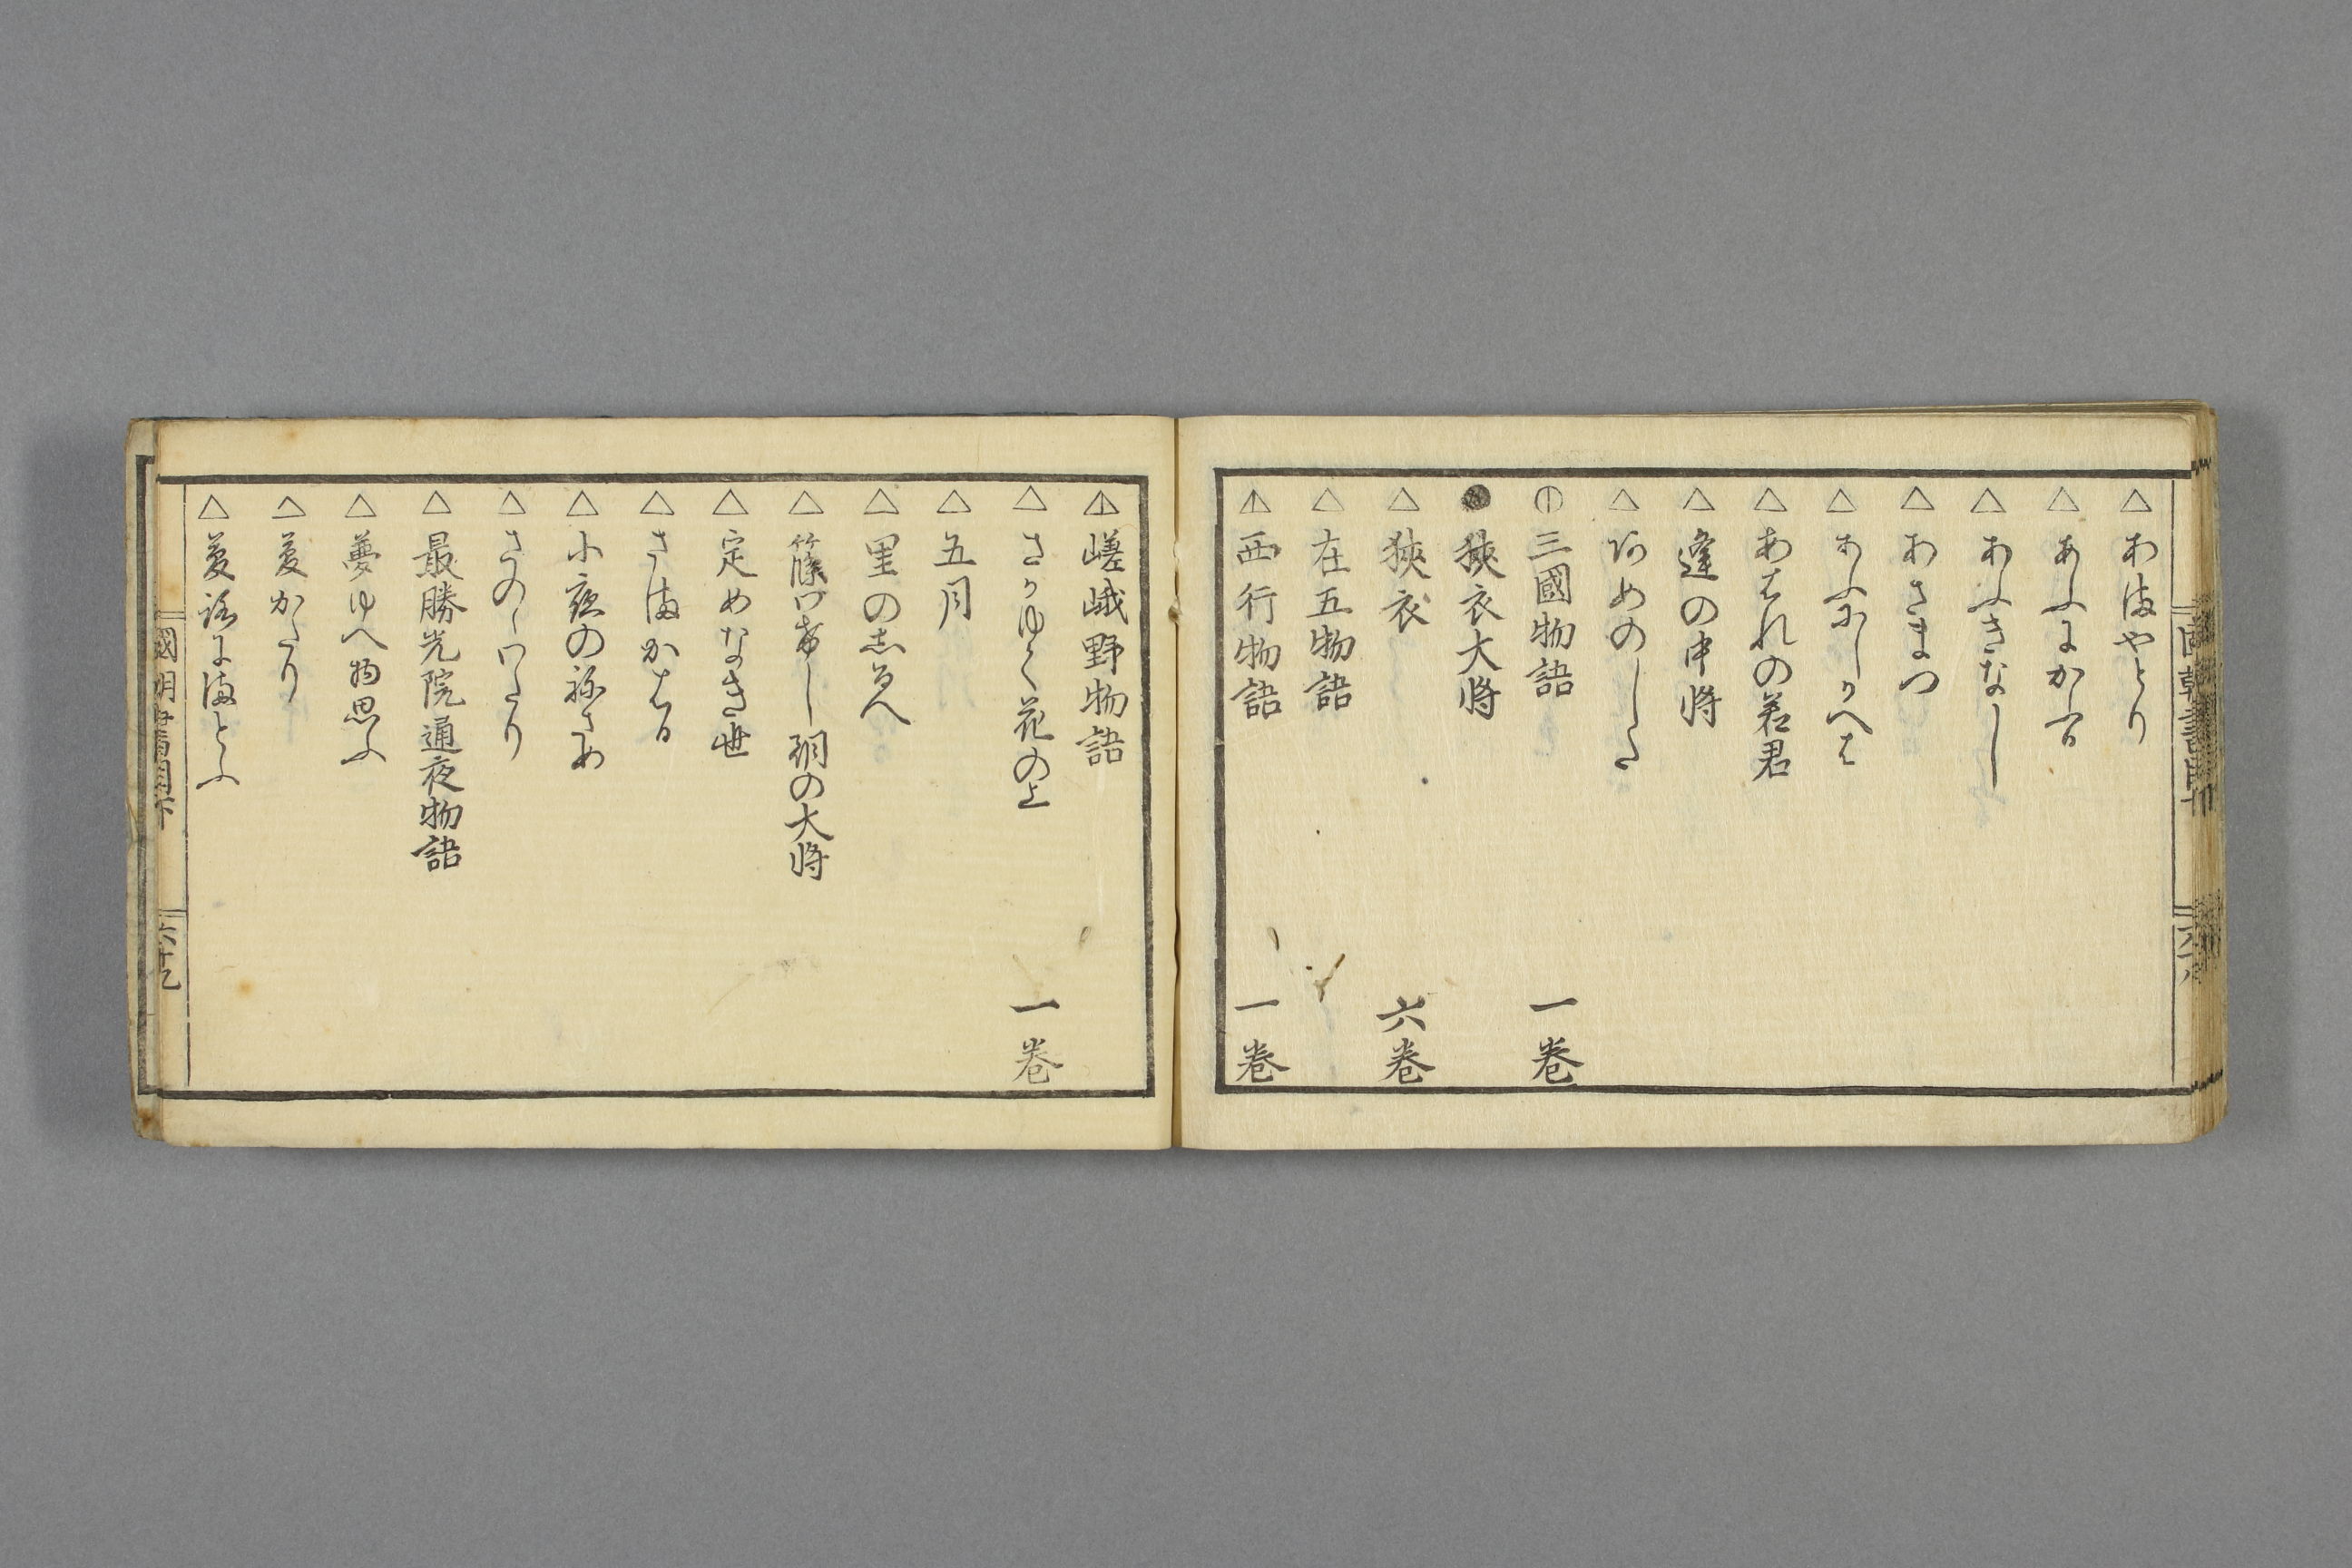 △ あまやとり
△ あふにかふる
△ あふきなかし
△ あさまつ
△ あふにしかへは
△ あはれの若君
△ 逢の中将
△ あめのした
三國物語 一巻
● 狭衣大将
△ 狭衣 六巻
△ 在五物語
西行物語 一巻
嵯峨野物語
△ さかゆく花の上 一巻
△ 五月
△ 里のしるへ
△ 篠分し朝の大将
△ 定めなき世
△ さまかはる
△ 小夜のねさめ
△ さのゝわたり
△ 最勝光院通夜物語
△ 夢ゆへ物思ふ
△ 夢かたり
△ 夢路にまとふ
國朝書目下 六十九